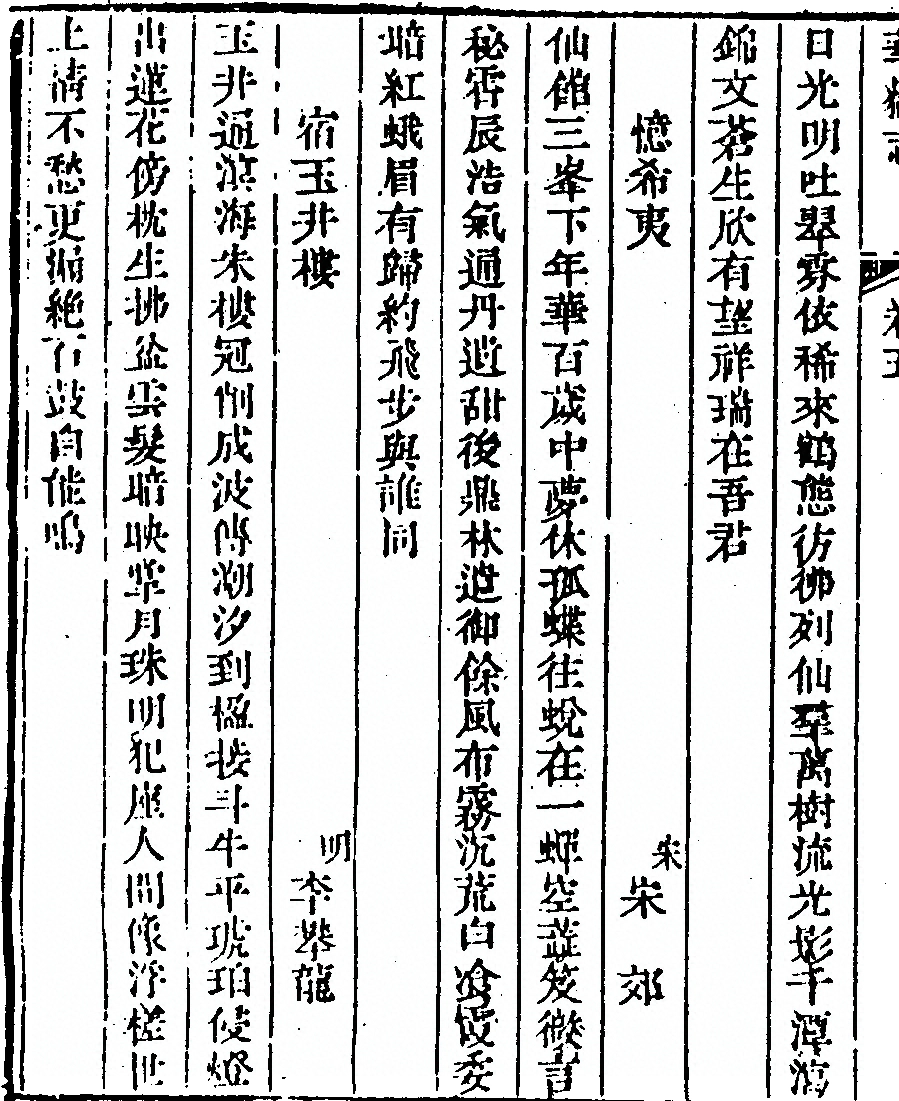 華嶽志 卷五
日光明吐翠雰依稀來鶴態彷彿列仙羣萬樹流光影千潭瀉
錦文蒼生欣有望祥瑞在吾君
憶希夷 宋 宋郊
仙館三峯下年華百歲中夢休孤蝶往蛻在一蟬空蘂笈微言
秘霄晨浩氣通丹逍甜後鼎林遣御餘風布霧沉荒白飡霞委
暗紅蛾眉有歸約飛步與誰同
宿玉井樓 明 李攀龍
玉井通溟海朱樓冠削成波傳潮汐到楹接斗牛平琥珀侵燈
出蓮花傍枕生拂盆雲髮暗映掌月珠明犯座人間像浮槎世
上情不愁更漏絕石鼓自能鳴